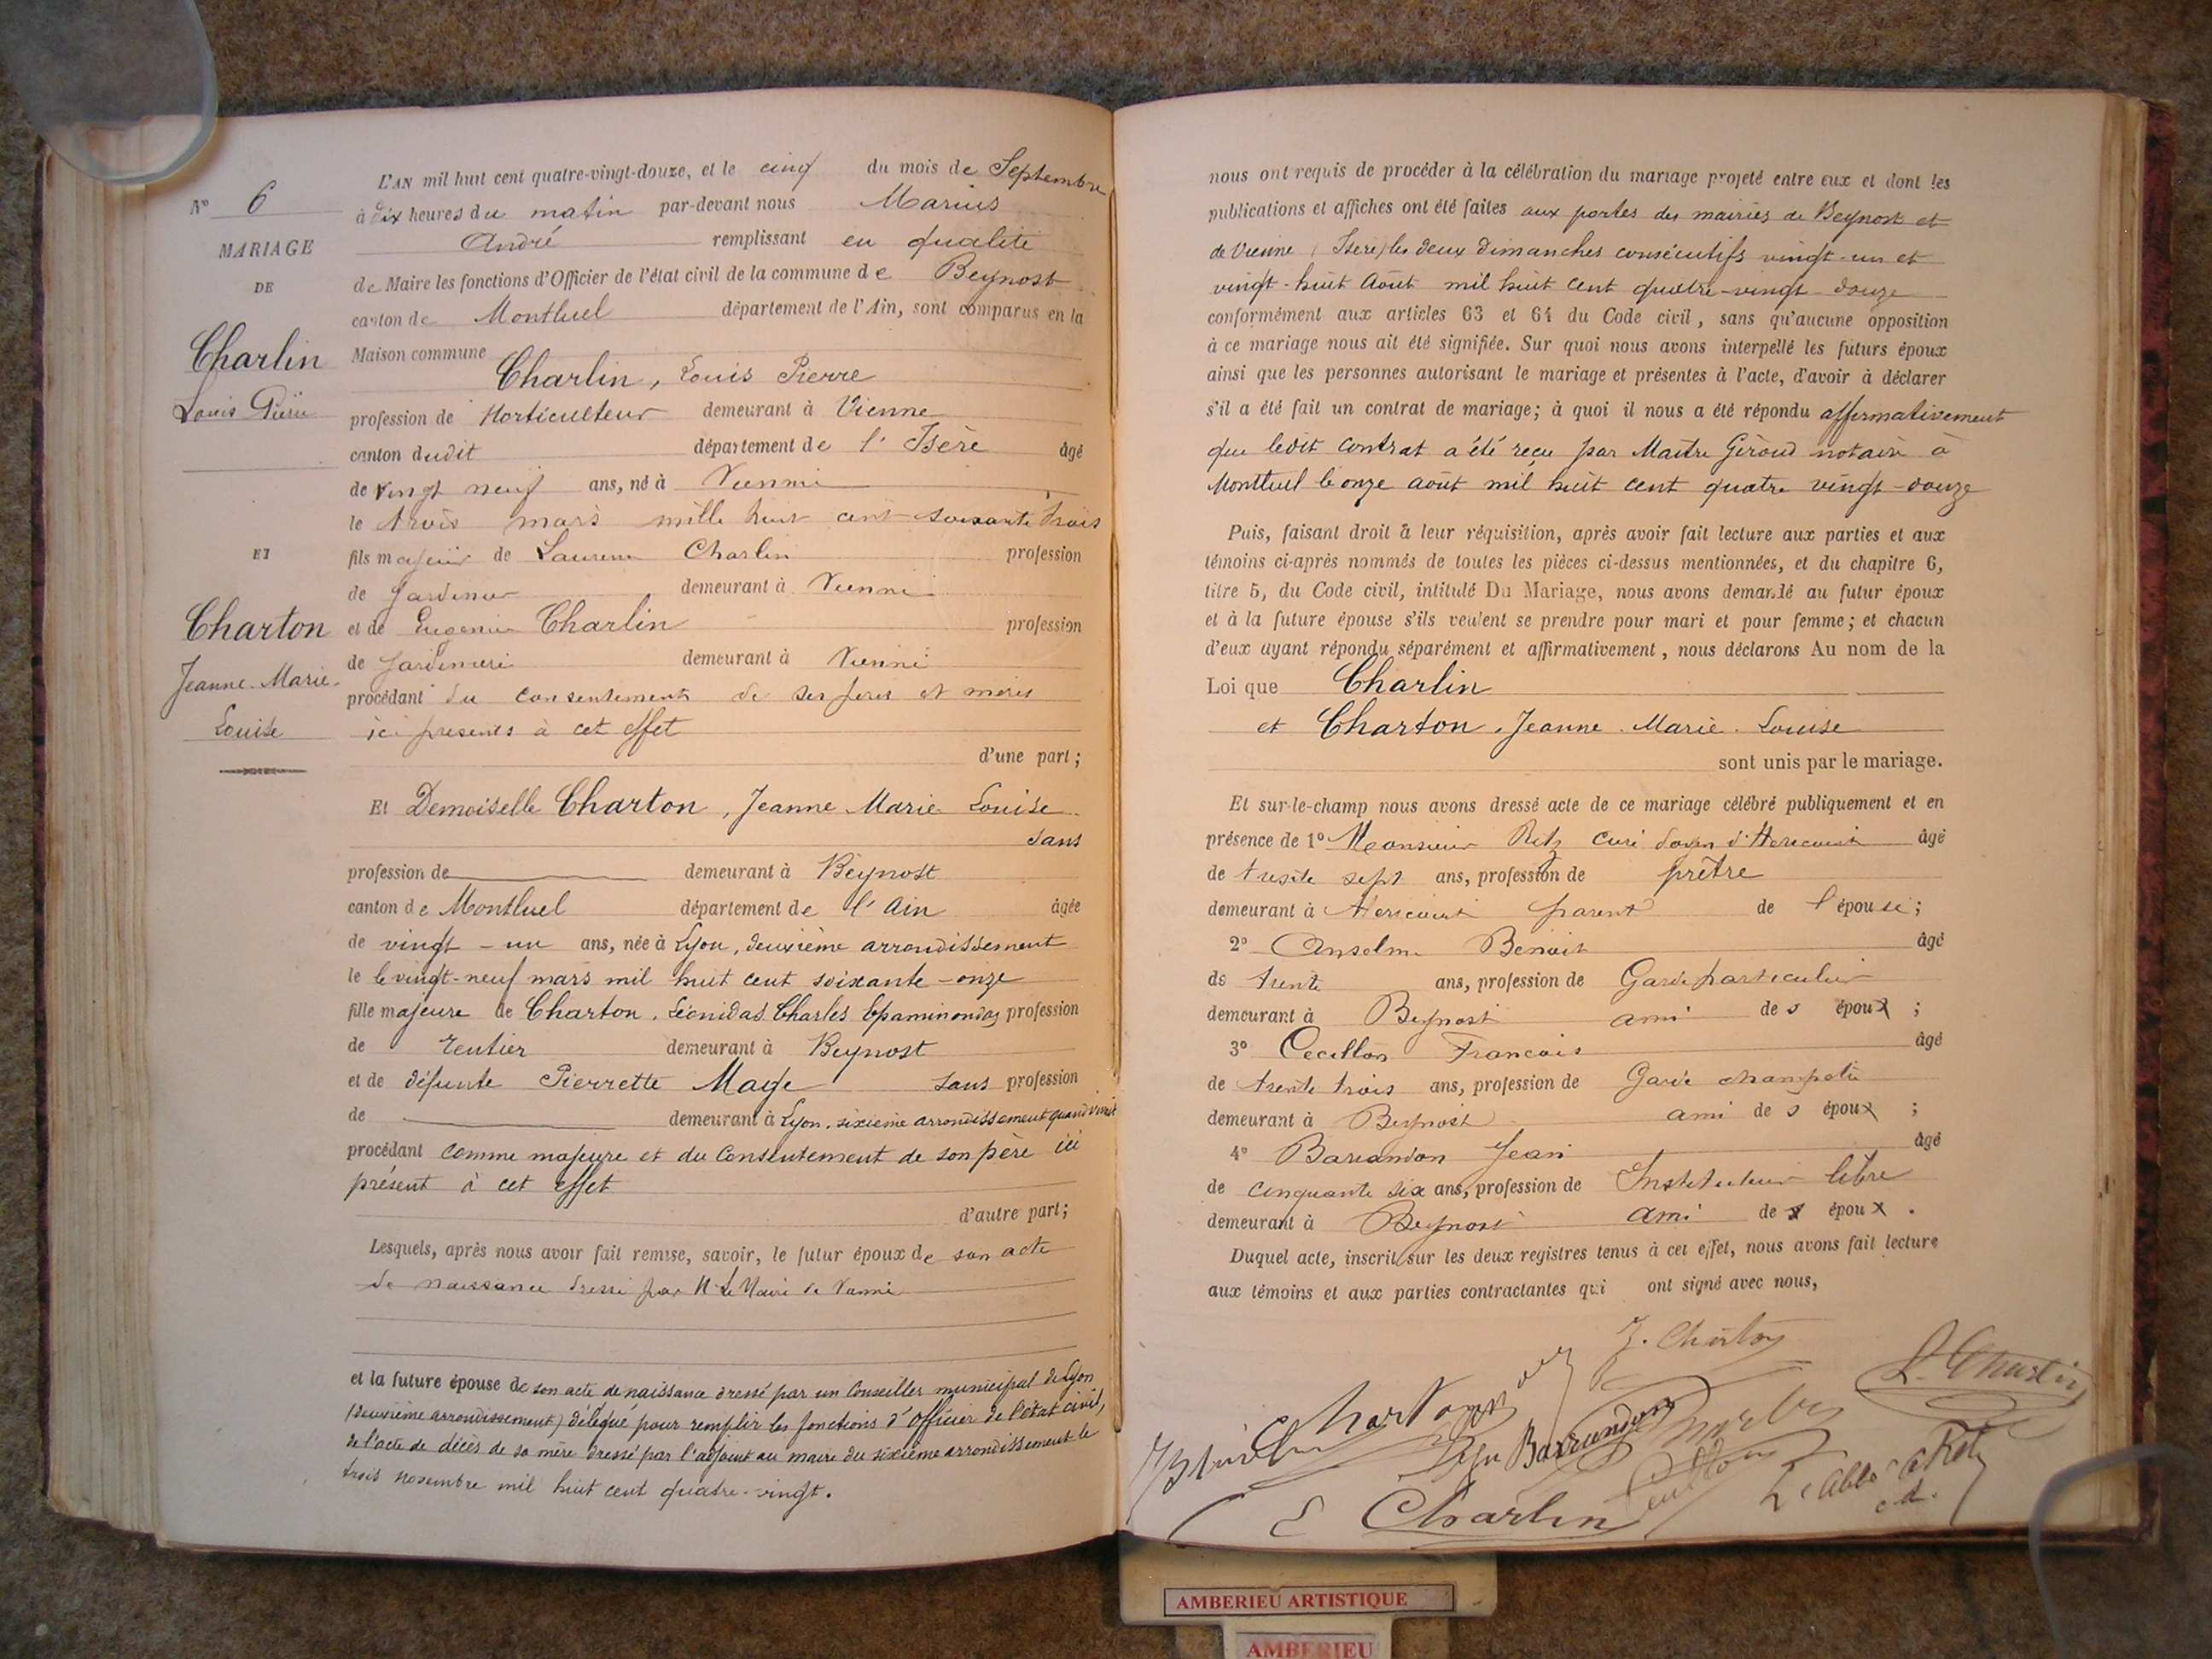 L'AN mil huit cent quatre-vingt-douze, et le cinq du mois de Septembre
à dix heures du matin par-devant nous Marius
André remplissant en qualité
de Maire les fonctions d'Officier de l'état civil de la commune de Beynost
canton de Montluel département de l'Ain, sont comparus en la
Maison commune
Charlin, Louis Pierre
profession de Horticulteur demeurant à Vienne
canton dudit département de l'Isère âgé
de vingt neuf ans, né à Vienne
le trois mars mille huit cent soixante trois
fils majeur de Laurent Charlin profession
de Jardinier demeurant à Vienne
et de Eugenie Charlin profession
de Jardiniere demeurant à Vienne
procédant du consentement de ses peres et meres
ici presents à cet effet
d'une part;
Et Demoiselle Charton, Jeanne Marie Louise
sans
profession de demeurant à Beynost
canton de Montluel département de l'Ain âgée
de vingt-un ans, née à Lyon, deuxième arrondissement
le le vingt-neuf mars mil huit cent soixante-onze
fille majeure de Charton, Léonidas Charles Epaminondas profession
de rentier demeurant à Beynost
et de défunte Pierrette Maye sans profession
de demeurant à Lyon, sixième arrondissement quand vivait
procédant comme majeure et du Consentement de son père ici
présent à cet effet
d'autre part;
Lesquels, après nous avoir fait remise, savoir, le futur époux de son acte
de naissance dressé par Mr Le Maire de Vienne
et la future épouse de son acte de naissance dressé par un Conseiller municipal de Lyon
(deuxième arrondissement) délégué pour remplir les fonctions d'officier de l'état civil,
de l'acte de décès de sa mère dressé par l'adjoint au maire du sixième arrondissement le
trois novembre mil huit cent quatre-vingt.
N° 6
MARIAGE
DE
Charlin
Louis Pierre
ET
Charton
Jeanne-Marie-
Louise
nous ont requis de procéder à la célébration du mariage projeté entre eux et dont les
publications et affiches ont été faites aux portes des mairies de Beynost et
de Vienne (Isère) les deux dimanches consécutifs vingt-un et
vingt-huit Août mil huit cent quatre-vingt-douze
conformément aux articles 63 et 64 du Code civil, sans qu'aucune opposition
à ce mariage nous ait été signifiée. Sur quoi nous avons interpellé les futurs époux
ainsi que les personnes autorisant le mariage et présentes à l'acte, d'avoir à déclarer
s'il a été fait un contrat de mariage; à quoi il nous a été répondu affirmativement
que ledit contrat a été reçu par Maître Giroud notaire à
Montluel le onze août mil huit cent quatre vingt-douze
Puis, faisant droit à leur réquisition, après avoir fait lecture aux parties et aux
témoins ci-après nommés de toutes les pièces ci-dessus mentionnées, et du chapitre 6,
titre 5, du Code civil, intitulé Du Mariage, nous avons demandé au futur époux
et à la future épouse s'ils veulent se prendre pour mari et pour femme; et chacun
d'eux ayant répondu séparément et affirmativement, nous déclarons Au nom de la
Loi que Charlin
et Charton, Jeanne-Marie-Louise
sont unis par le mariage.
Et sur-le-champ nous avons dressé acte de ce mariage célébré publiquement et en
présence de 1° Monsieur Retz curé doyen d'Hericourt âgé
de trente sept ans, profession de prêtre
demeurant à Hericourt parent de l'épouse;
2° Anselme Benoit âgé
de trente ans, profession de Garde particulier
demeurant à Beynost ami des époux;
3° Cecillon Francois âgé
de trente trois ans, profession de Garde champetre
demeurant à Beynost ami des époux;
4° Barrandon Jean âgé
de cinquante six ans, profession de Instituteur libre
demeurant à Beynost ami des époux.
Duquel acte, inscrit sur les deux registres tenus à cet effet, nous avons fait lecture
aux témoins et aux parties contractantes qui ont signé avec nous,
J. Charton
L. Charlin
Charton
Barrandon
Cecillon
L'abbé Retz
c.d.
E Charlin
AMBERIEU ARTISTIQUE
AMBERIEU